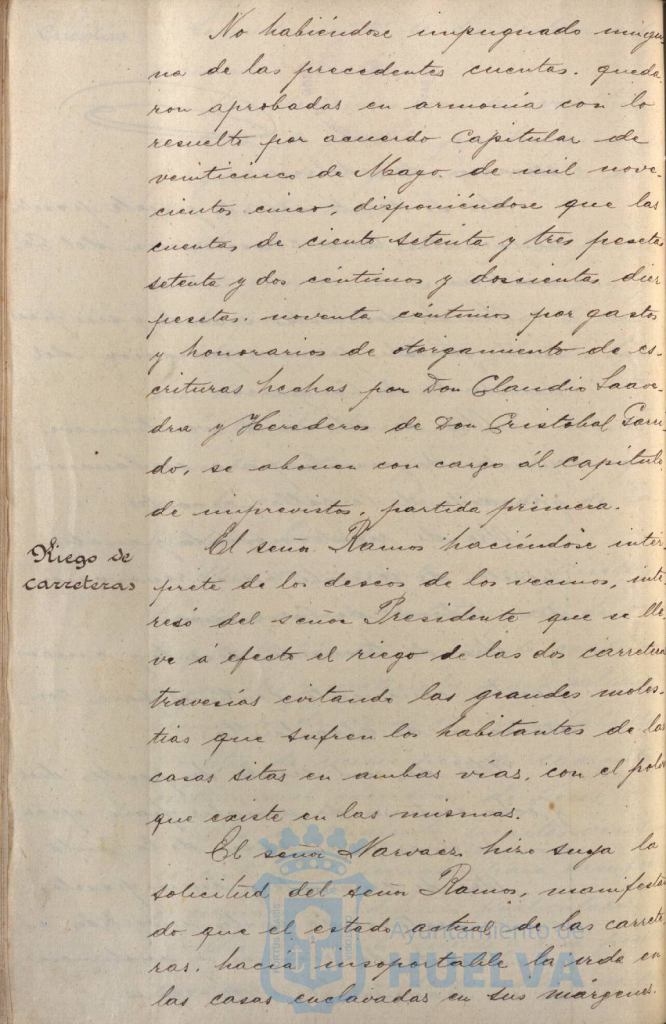 No habiéndose impugnado ningu-
na de las precedentes cuentas. queda-
ron aprobadas en armonía con lo
resuelto por acuerdo Capitular de
veinticinco de Mayo de mil nove-
cientos cinco, disponiéndose que las
cuentas de ciento setenta y tres pesetas
setenta y dos céntimos y doscientas diez
pesetas. noventa céntimos por gastos
y honorarios de otorgamiento de es-
crituras hechas por Don Claudio Saave-
dra y Herederos de Don Cristobal Garri-
do, se abonen con cargo ál capítulo
de imprevistos, partida primera.
Riego de
carreteras
El señor Ramos haciéndose intér-
prete de los deseos de los vecinos, inte-
resó del señor Presidente que se lle-
ve á efecto el riego de las dos carreteras
travesías evitando las grandes moles-
tias que sufren los habitantes de las
casas sitas en ambas vías, con el polvo
que existe en las mismas.
El señor Narvaez hizo suya la
solicitud del señor Ramos, manifestan-
do que el estado actual de las carrete-
ras, hacía insoportable la vida en
las casas enclavadas en sus márgenes.
Ayuntamiento de
HUELVA